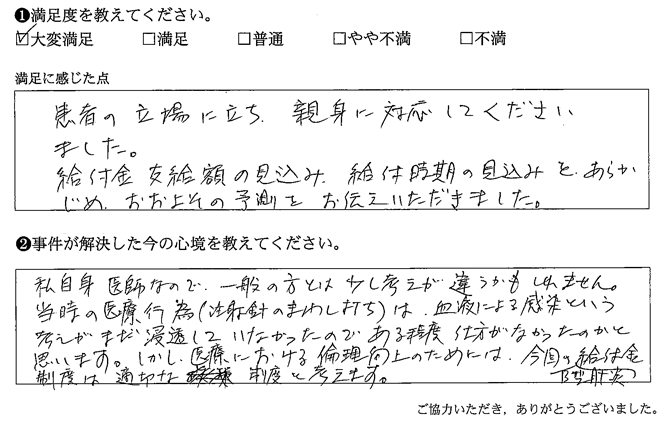 ❶満足度を教えてください。
☑大変満足 □満足 □普通 □やや不満 □不満
満足に感じた点
患者の立場に立ち、親身に対応してください
ました。
給付金支給額の見込み、給付時期の見込みを、あらか
じめ、おおよその予測をお伝えいただきました。
❷事件が解決した今の心境を教えてください。
私自身医師なので、一般の方とは少し考えが違うかもしれません。
当時の医療行為(注射針のまわし打ち)は、血液による感染という
考えがまだ浸透していなかったのである程度仕方がなかったのかと
思います。しかし、医療における倫理向上のためには、今回の給付金
制度は適切な制度と考えます。 B型肝炎
ご協力いただき，ありがとうございました。